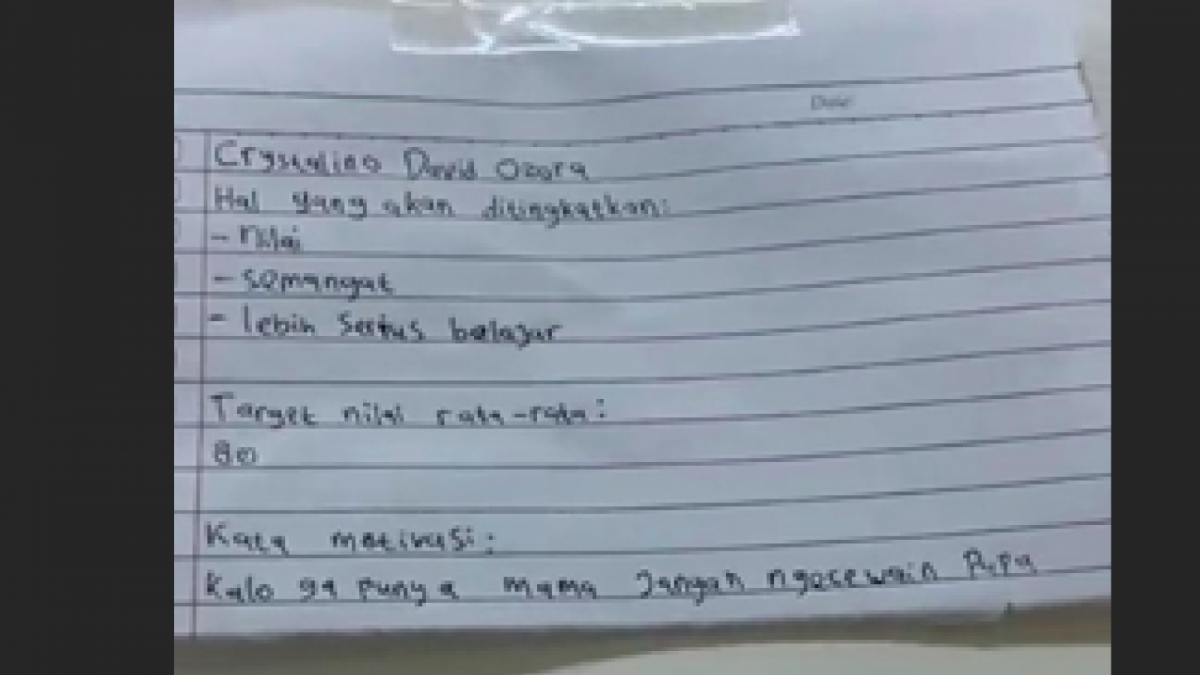 Date:
Crystalino David Ozora
Hal yang akan ditingkatkan:
- nilai
- semangat
- lebih serius belajar
Target nilai rata-rata:
80
Kata motivasi:
Kalo ga punya mama jangan ngecewain Papa